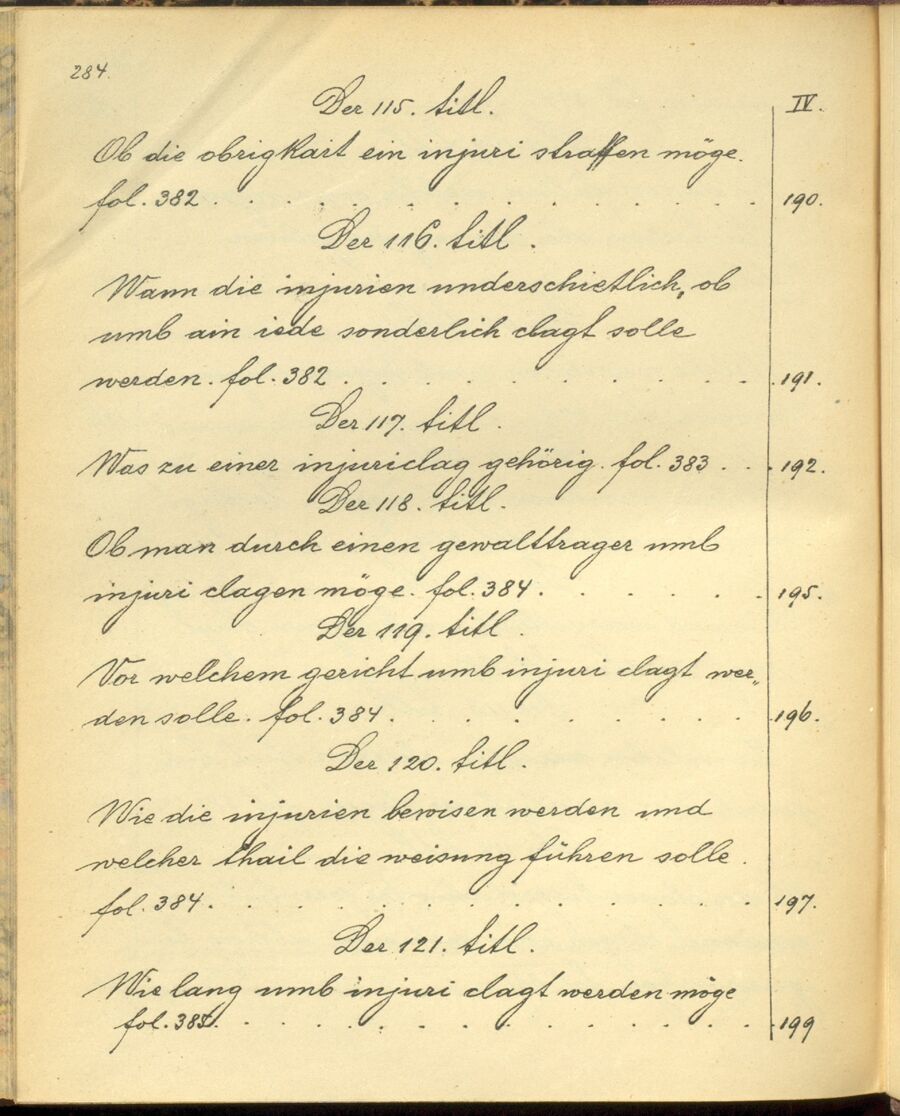 284.
IV.
Der 115. titl.
Ob die obrigkait ein injuri straffen möge.
fol. 382 . . . . . . . . . . . . . 190.
Der 116. titl.
Wann die injurien underschietlich, ob
umb ain iede sonderlich clagt solle
werden. fol. 382 . . . . . . . . . . 191.
Der 117. titl.
Was zu einer injuriclag gehörig. fol. 383 . . . 192.
Der 118. titl.
Ob man durch einen gewalttrager umb
injuri clagen möge. fol. 384 . . . . . . 195.
Der 119. titl.
Vor welchem gericht umb injuri clagt wer„
den solle. fol. 384 . . . . . . . . 196.
Der 120. titl.
Wie die injurien bewisen werden und
welcher thail die weisung führen solle.
fol. 384 . . . . . . . . . . . . . 197.
Der 121. titl.
Wie lang umb injuri clagt werden möge
fol. 385. . . . . . . . . . . . . 199